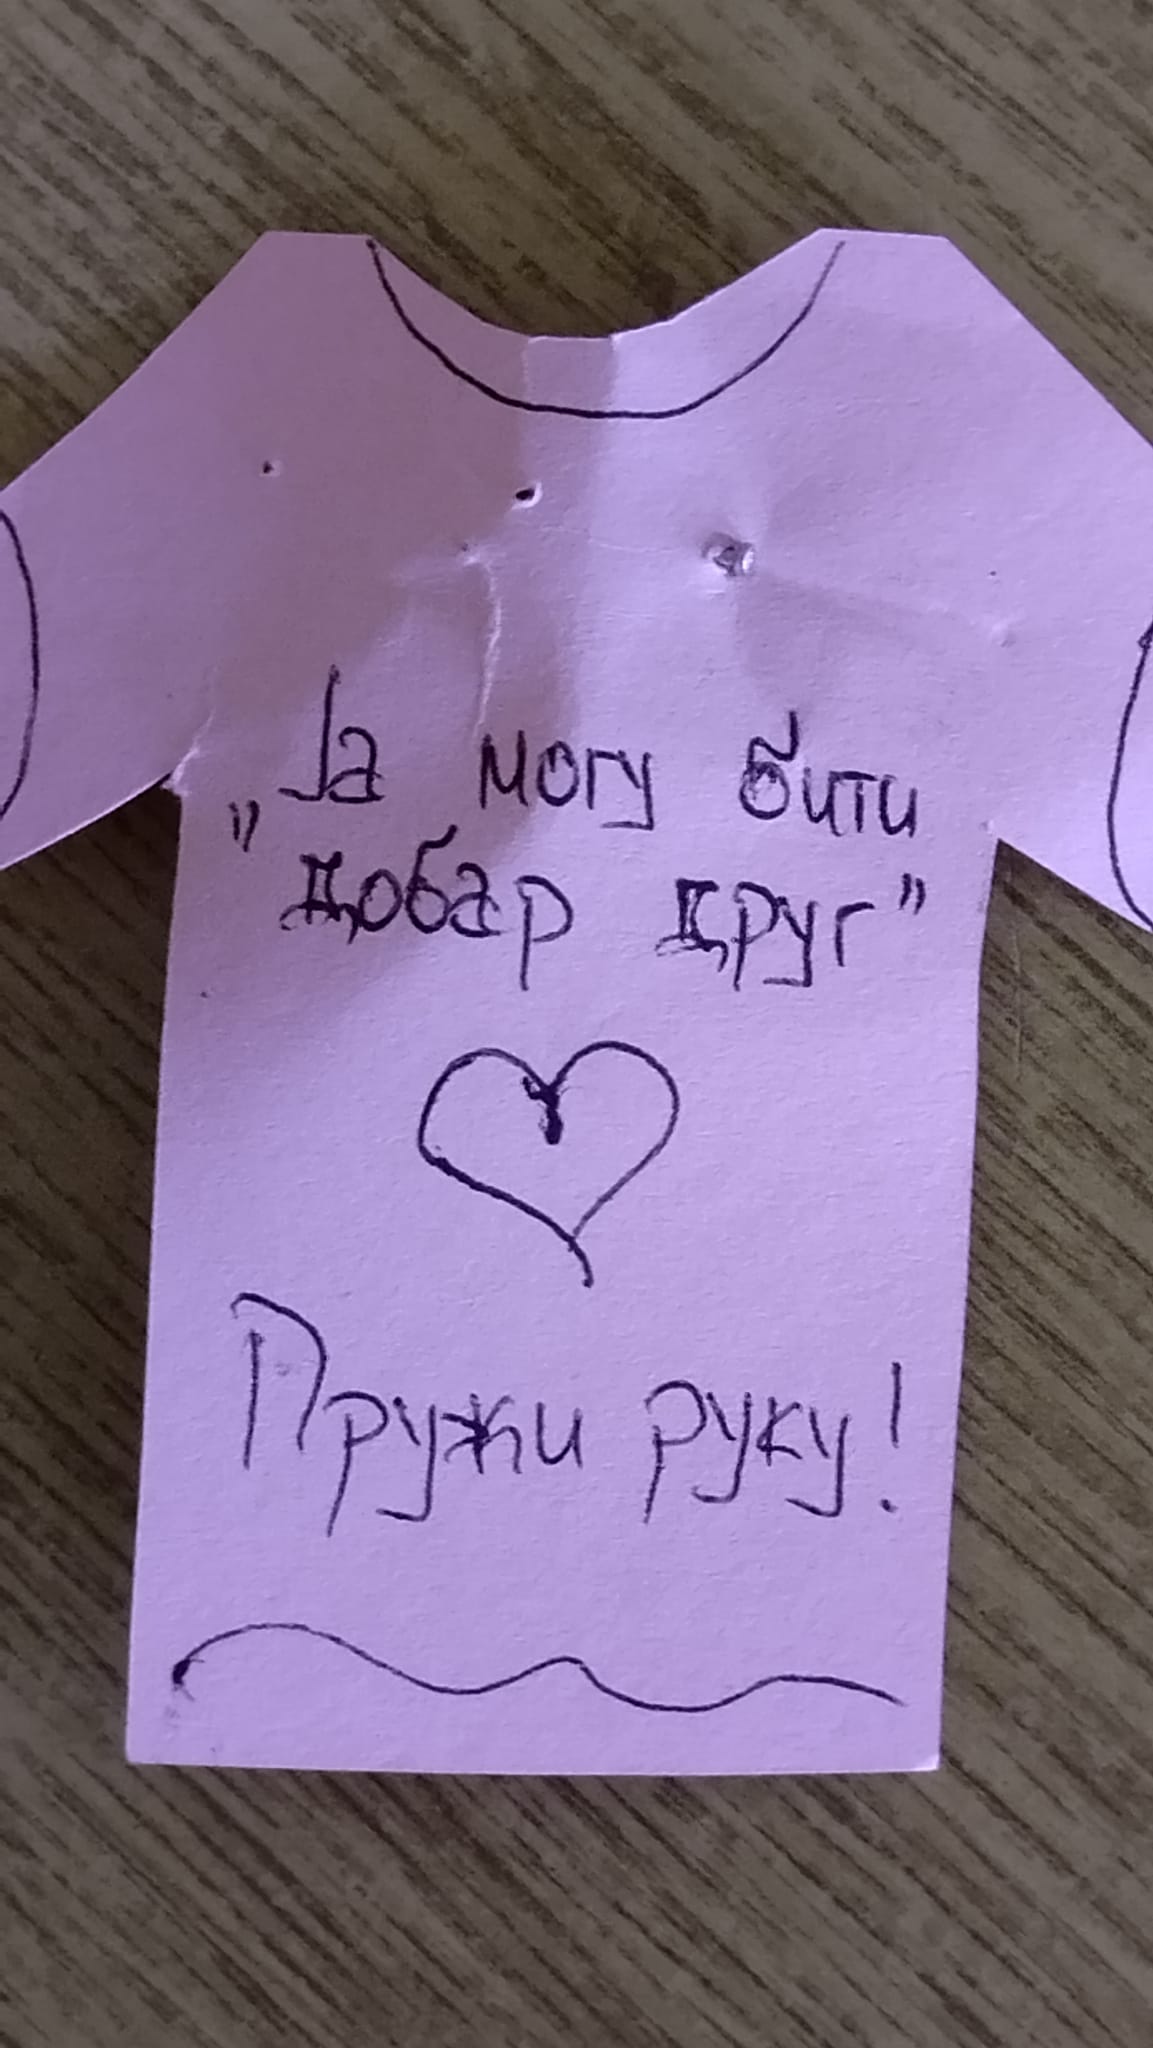 „Ја могу бити
добар друг”
Пружи руку!